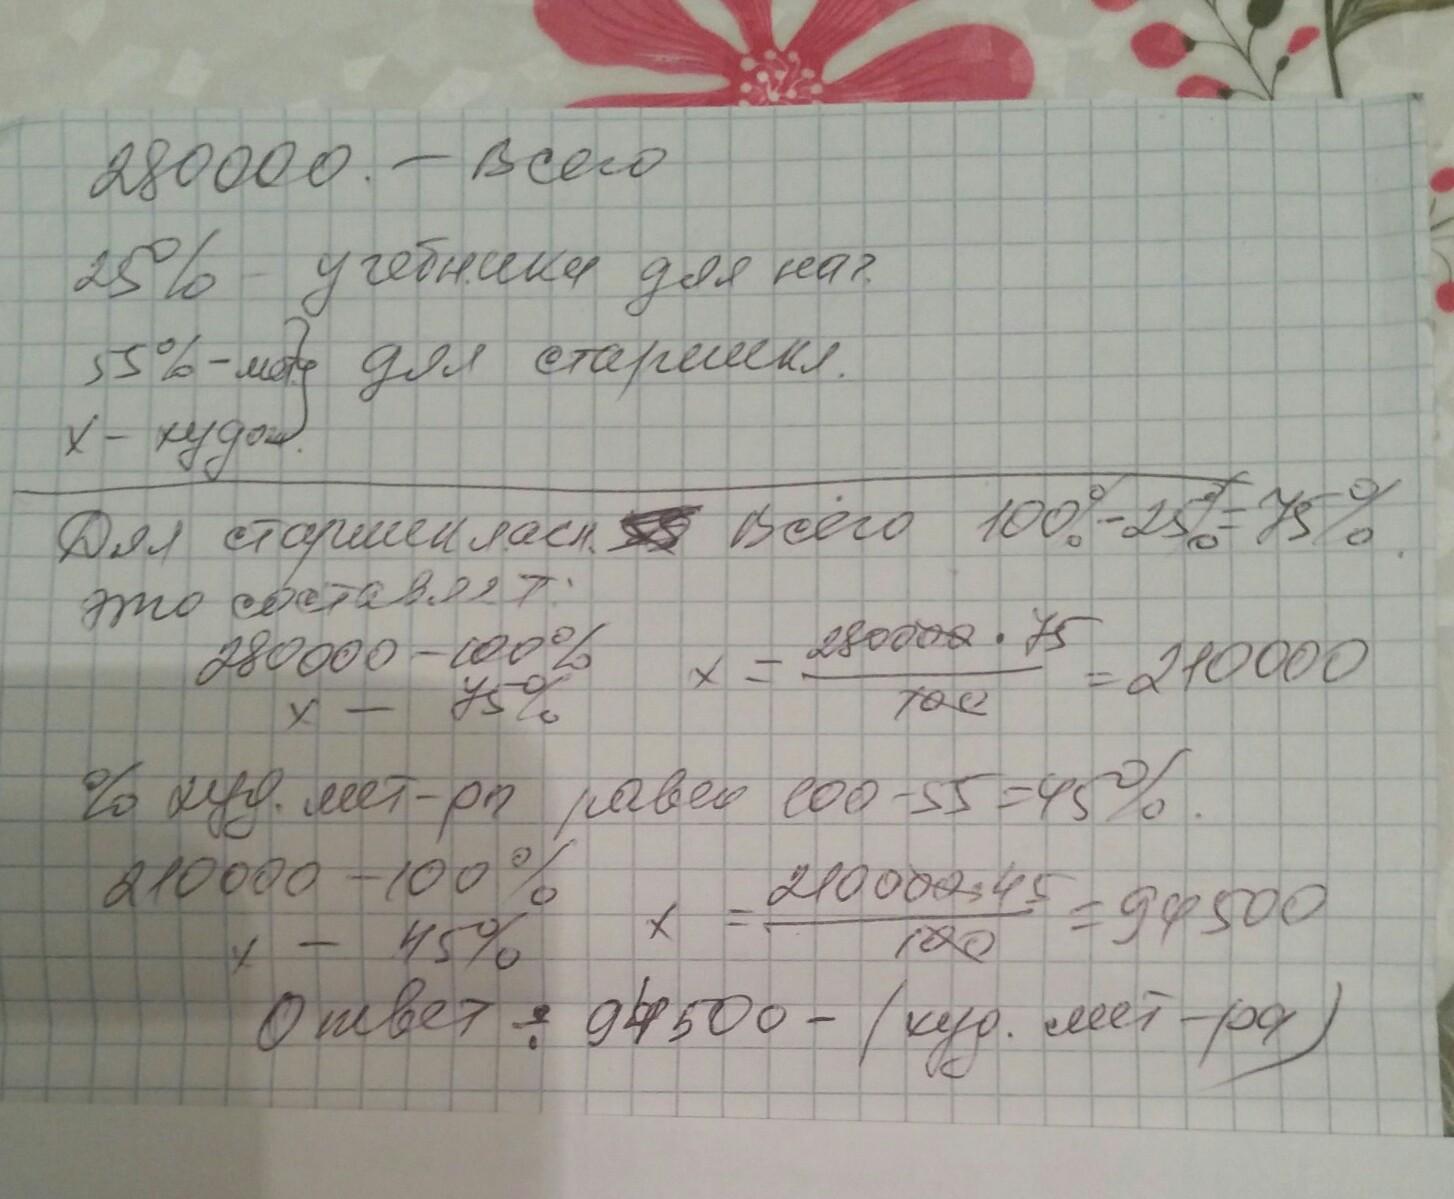 280000. - Всего
25% - учебники для нач.
55% - мат. для старшекл.
х - худож.
Для старшекласн. Всего 100% - 25% = 75%.
это составляет:
280000 - 100% х = 280000 · 75 / 100 = 210000
х - 75%
% худ. лит-ры равен 100 - 55 = 45%.
210000 - 100% х = 210000 · 45 / 100 = 94500
х - 45%
Ответ: 94500 - (худ. лит-ра)